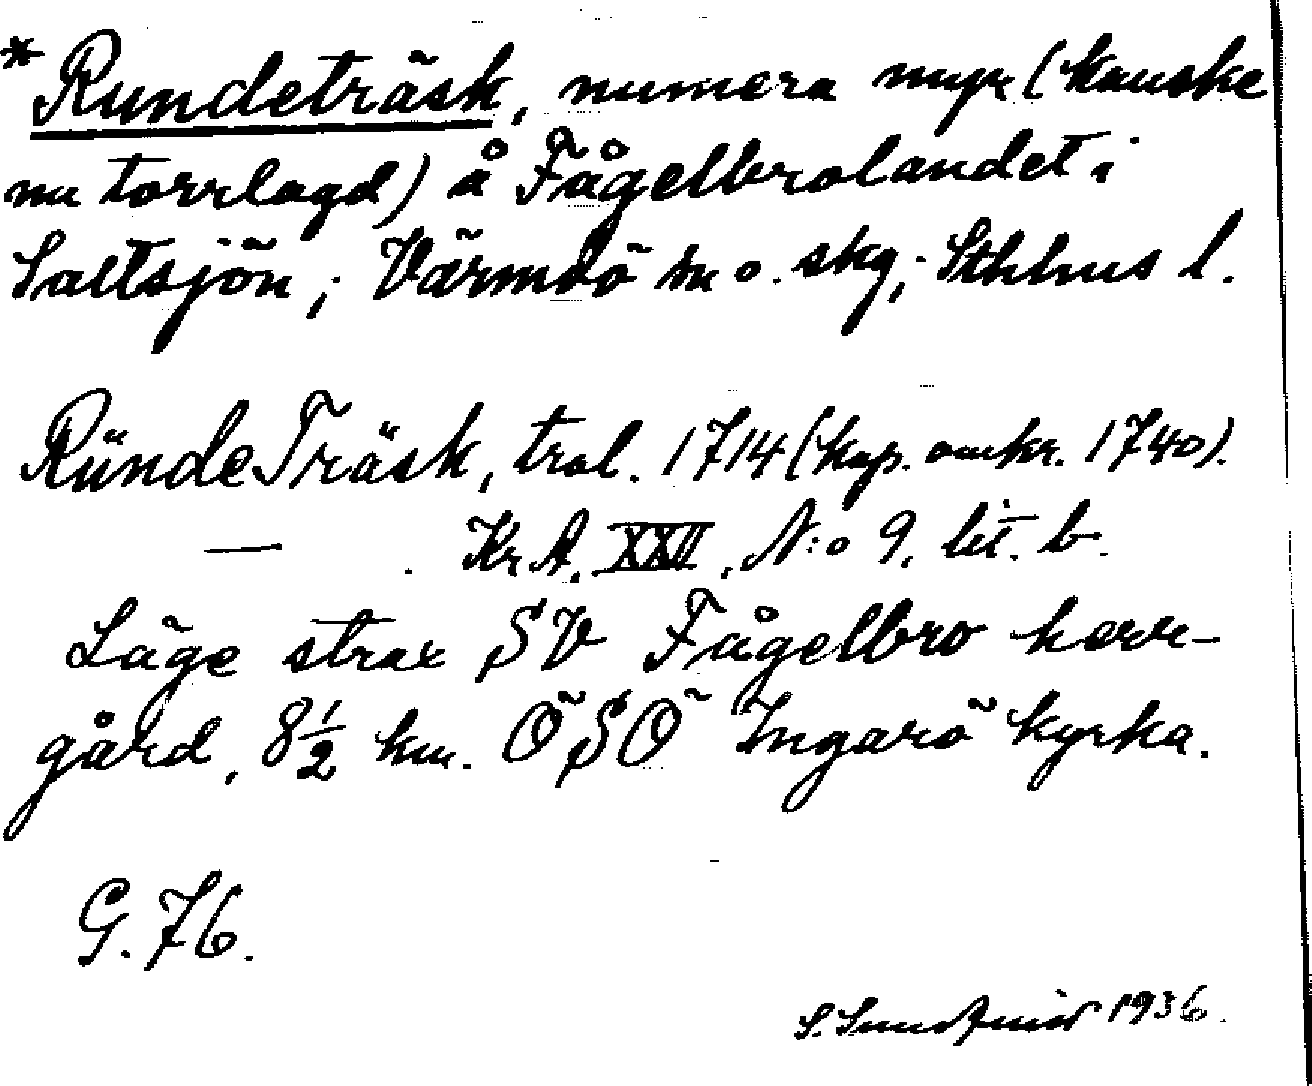 *Rundeträsk, numera myr (kanske
nu torrlagd) å Fågelbrolandet i
Saltsjön; Värmdö sn o. skg; Sthlms l.
Ründe Träsk, trol. 1714 (kop. omkr. 1740).
— . KrA, XXII, N:o 9, lit. b.
Läge strax SV Fågelbro herr-
gård, 8½ km. ÖSÖ Ingarö kyrka.
G. 76.
S. 1936.